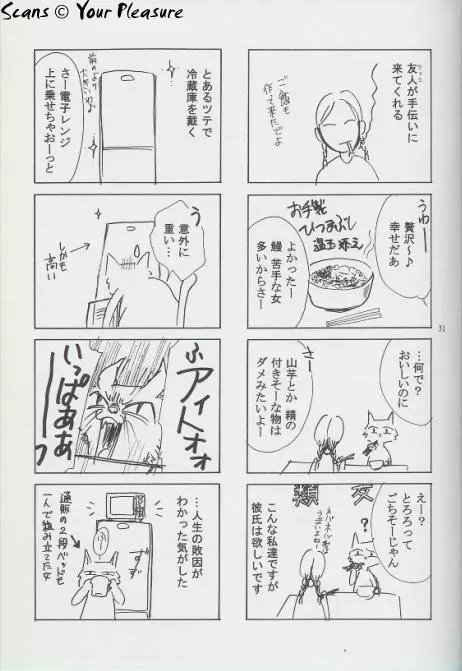 Scans © Your Pleasure
友人が手伝いに
来てくれる
ご飯も
作って来たでよ
うわー
贅沢〜♪
幸せだあ
お手製
ひつまぶし
温玉添え
よかったー
鰻 苦手な女
多いからさー
…何で?
おいしいのに
さー
山芋とか 精の
付きそーな物は
ダメみたいよー
えー?
とろろって
ごちそーじゃん
?
ネバネバ
うまいよねー
こんな私達ですが
彼氏は欲しいです
31
とあるツテで
冷蔵庫を戴く
前のより
大きいわぁ
さー電子レンジ
上に乗せちゃおーっと
う
意外に
重い…
しかも
高い
ふアイトオォ
いっぱああーつ
…人生の敗因が
わかった気がした
ずず
通販の2段ベッドも
一人で組み立てた女